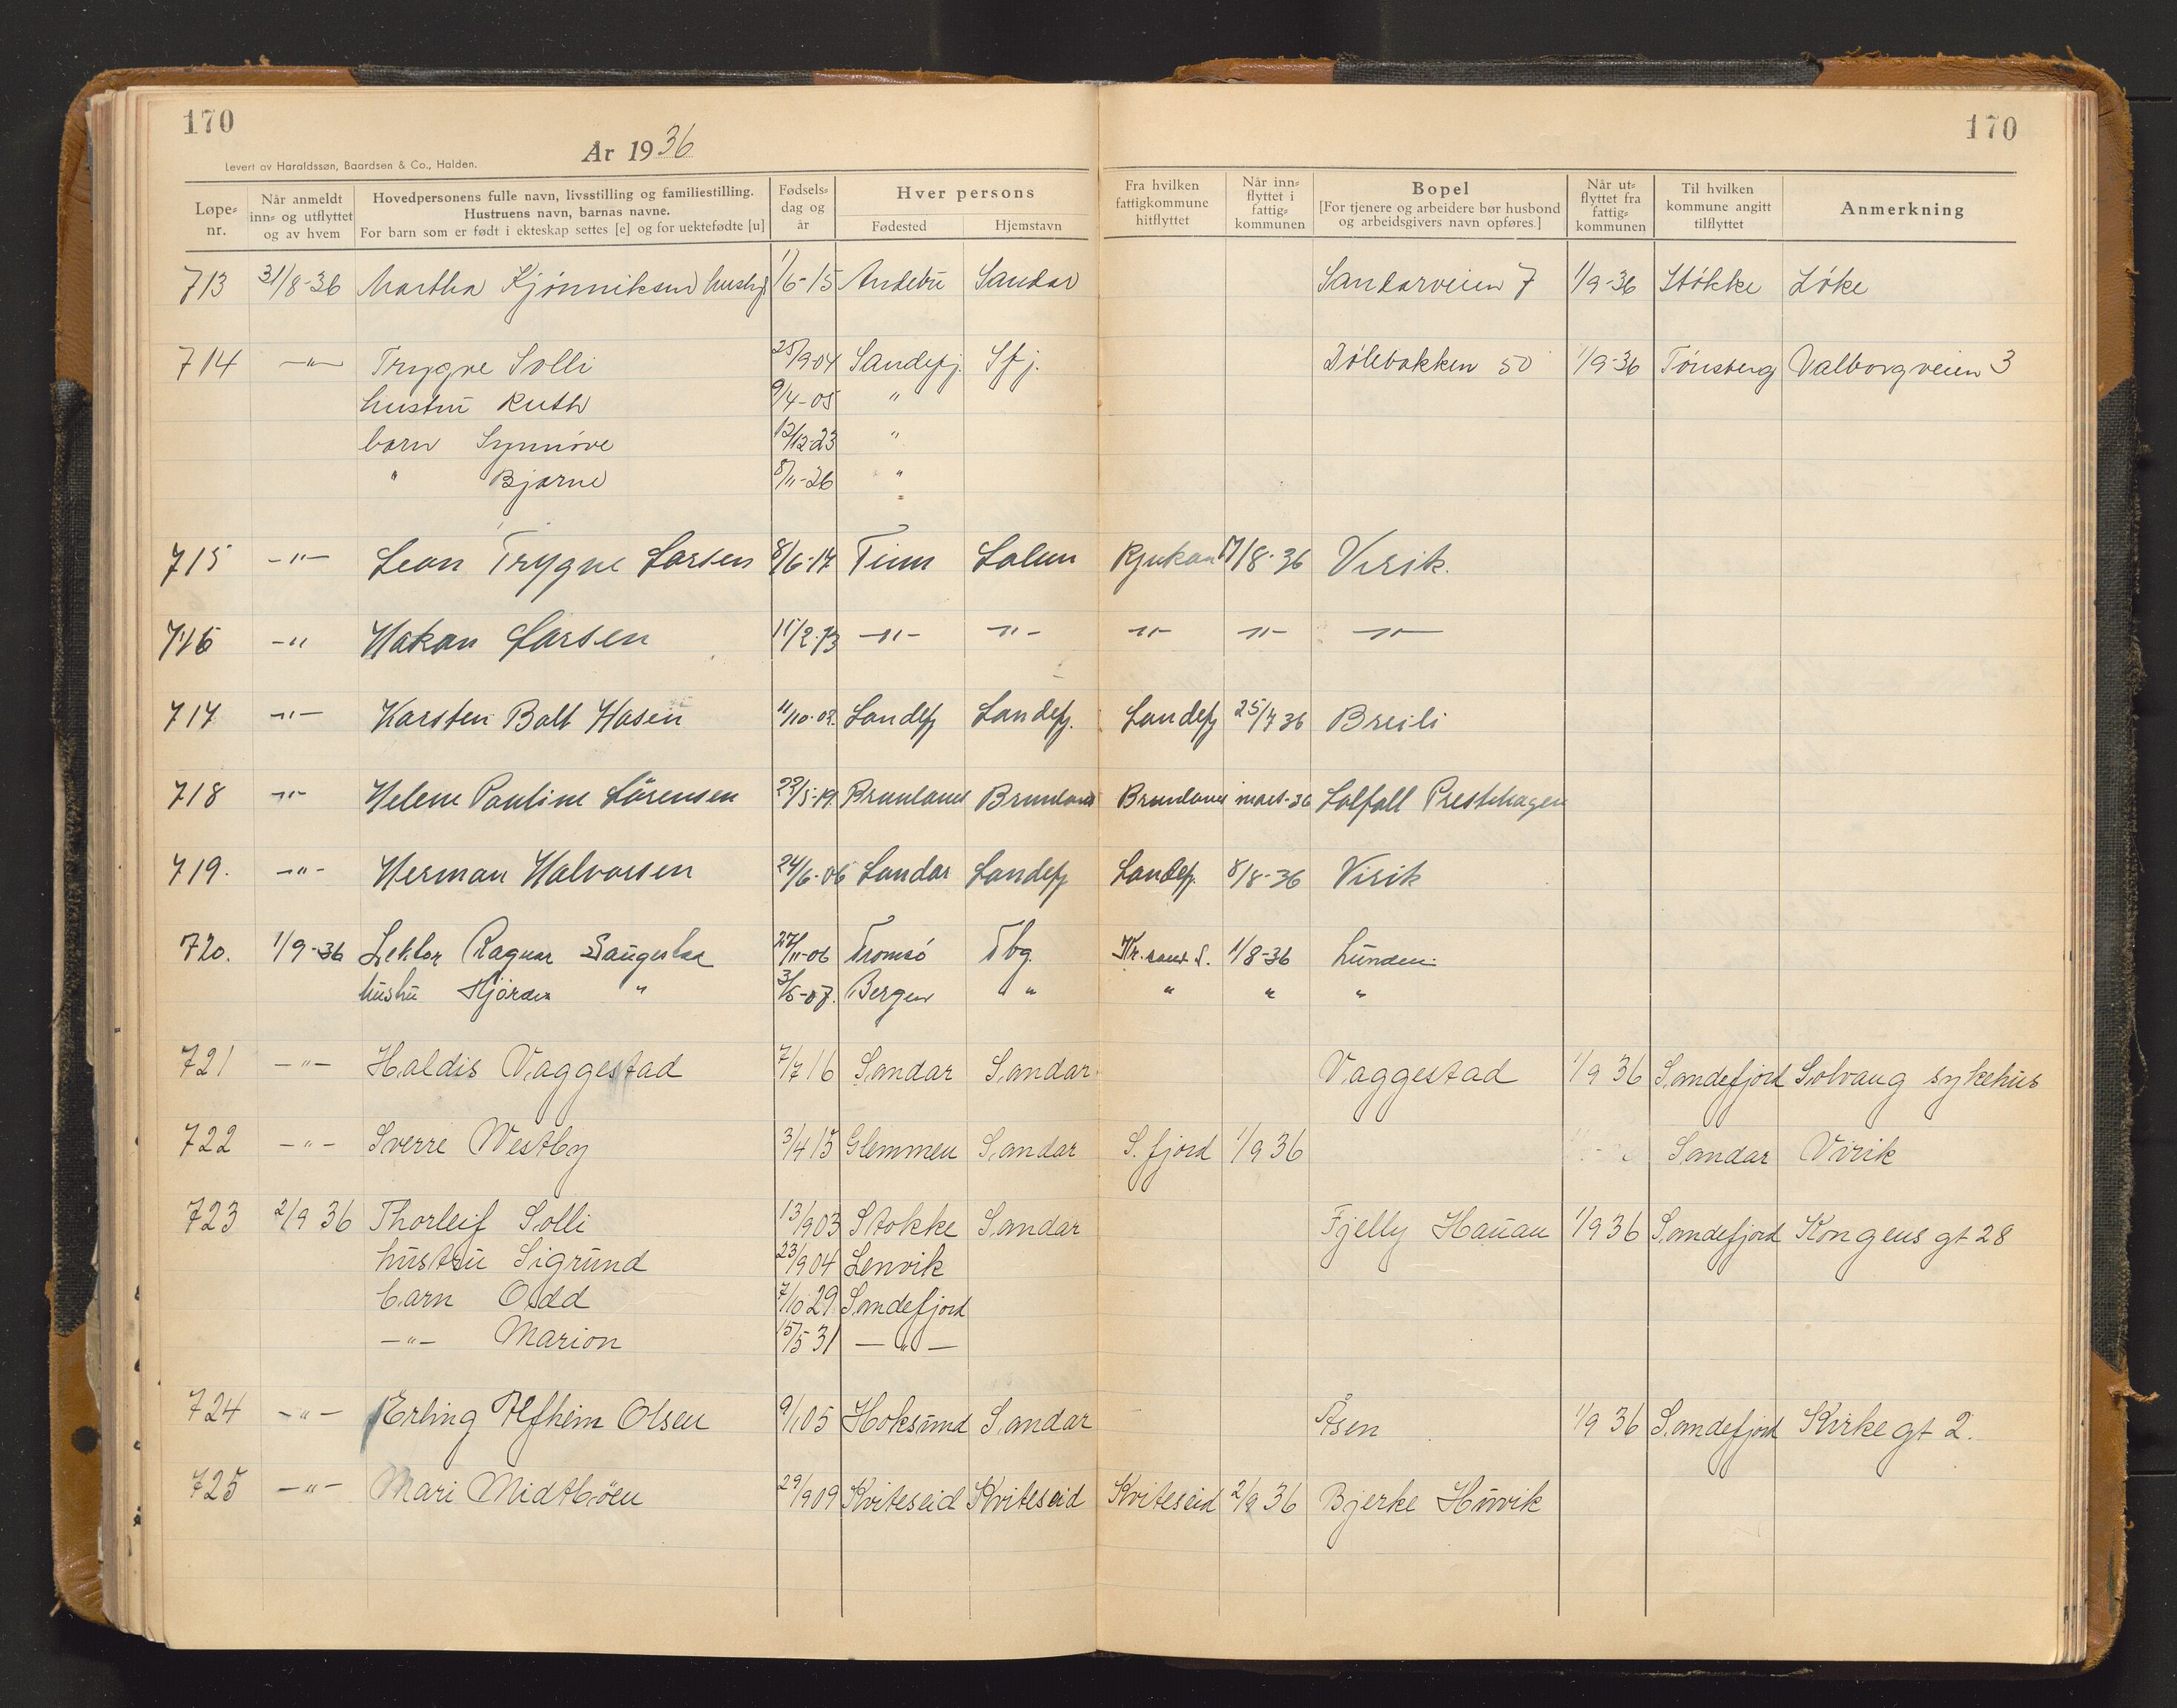 170
170
År 1936
Levert av Haraldssøn, Baardsen & Co., Halden.
Løpe-nr. Når anmeldt inn- og utflyttet og av hvem Hovedpersonens fulle navn, livsstilling og familiestilling. Hustruens navn, barnas navne. For barn som er født i ekteskap settes [e] og for uektefødte [u] Fødsels-dag og år Hver persons Fødested Hjemstavn Fra hvilken fattigkommune hitflyttet Når inn-flyttet i fattig-kommunen Bopel [For tjenere og arbeidere bør husbond og arbeidsgivers navn opføres.] Når ut-flyttet fra fattig-kommunen Til hvilken kommune angitt tilflyttet Anmerkning
713 31/8-36 Martha Kjønniksen 1/6-15 Andebu Sandar Sandarveien 7 1/9-36 Stokke Løke
714 -"- Trygve Solli 25/9 04 Sandefj. Sfj. Dølebakken 50 1/9-36 Tønsberg Valborgveien 3
hustru Ruth 9/4-05 "
barn Synnøve 12/12-23 "
" Bjarne 8/11-26 "
715 -"- Leon Trygve Larsen 8/6-17 Tinn Solum Rjukan 17/8-36 Virik.
716 -"- Håkon Larsen 15/2-13 -"- -"- -"- -"- -"-
717 -"- Karsten Balt Hasen 11/10-02 Sandefj Sandefj. Sandefj 25/7 36 Breili
718 -"- Helene Pauline Sørensen 22/5-19. Brunlanes Brunlanes Brunlanes mars-36 Solfall Prestehagen
719. -"- Herman Halvorsen 24/6-06 Sandar Sandefj Sandefj. 8/8-36 Virik
720. 1/9-36 Lektor Ragnar Saugestad 27/11-06 Tromsø Tbg. Kr.sand S. 1/8-36 Lunden
hustru Hjørdis " 3/5-07. Bergen " " " "
721 -"- Haldis Vaggestad 7/7 16 Sandar Sandar Vaggestad 1/9 36 Sandefjord Solvang sykehus
722 -"- Sverre Westby 3/4 15 Glemmen Sandar S.fjord 1/9 36 Sandar Virik
723 2/9 36 Thorleif Solli 13/9 03 Stokke Sandar Fjelly Hauan 1/9 36 Sandefjord Kongens gt 28
hustru Sigrund 23/9 04 Lenvik
barn Odd 7/10 29 Sandefjord
-"- Marion 15/5 31 -"-
724 -"- Erling Alfheim Olsen 9/1 05 Hoksund Sandar Åsen 1/9 36 Sandefjord Kirkegt 2.
725 -"- Mari Midtbøen 29/9 09 Kviteseid Kviteseid Kviteseid 2/9 36 Bjerke Huvik